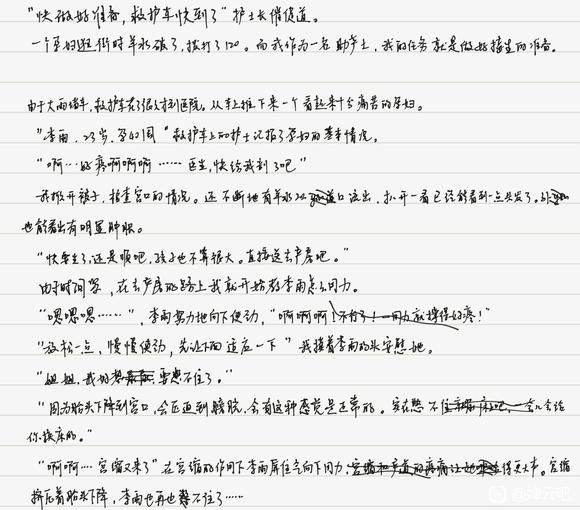 "快做好准备，救护车快到了"护士长催促道。
一个孕妇逛街时羊水破了，拨打了120。而我作为一名助产士，我的任务就是做好接生的准备。
由于大雨堵车，救护车花了很久才到医院。从车上推下来一个看起来十分痛苦的孕妇。
"李雨，23岁，孕40周"救护车上的护士汇报了孕妇的基本情况。
"啊…好疼啊啊啊……医生，快给我剖了吧"
我掀开被子，检查宫口的情况。还不断地有羊水从 口流出，扒开一看已经能看到一点头发了。外
也能看出有明显肿胀。
"快要生了，还是顺吧，孩子也不算很大。直接送去产房吧。"
由于时间紧，在去产房的路上我就开始教李雨怎么用力。
"嗯嗯嗯……"，李雨努力地向下使劲，"啊啊啊！不行了！一用力就撑得好疼！"
"放松一点，慢慢使劲，先让下面适应一下"我摸着李雨的头安慰她。
"姐姐，我好 要憋不住了。"
"因为胎头下降到宫口，会压迫到膀胱，会有这种感觉是正常的。实在憋不住 ，一会儿会给
你换床的。"
"啊啊…宫缩又来了"在宫缩的作用下李雨屏住气向下用力， 得更大声。宫缩
挤压着胎头下降，李雨也再也憋不住了……